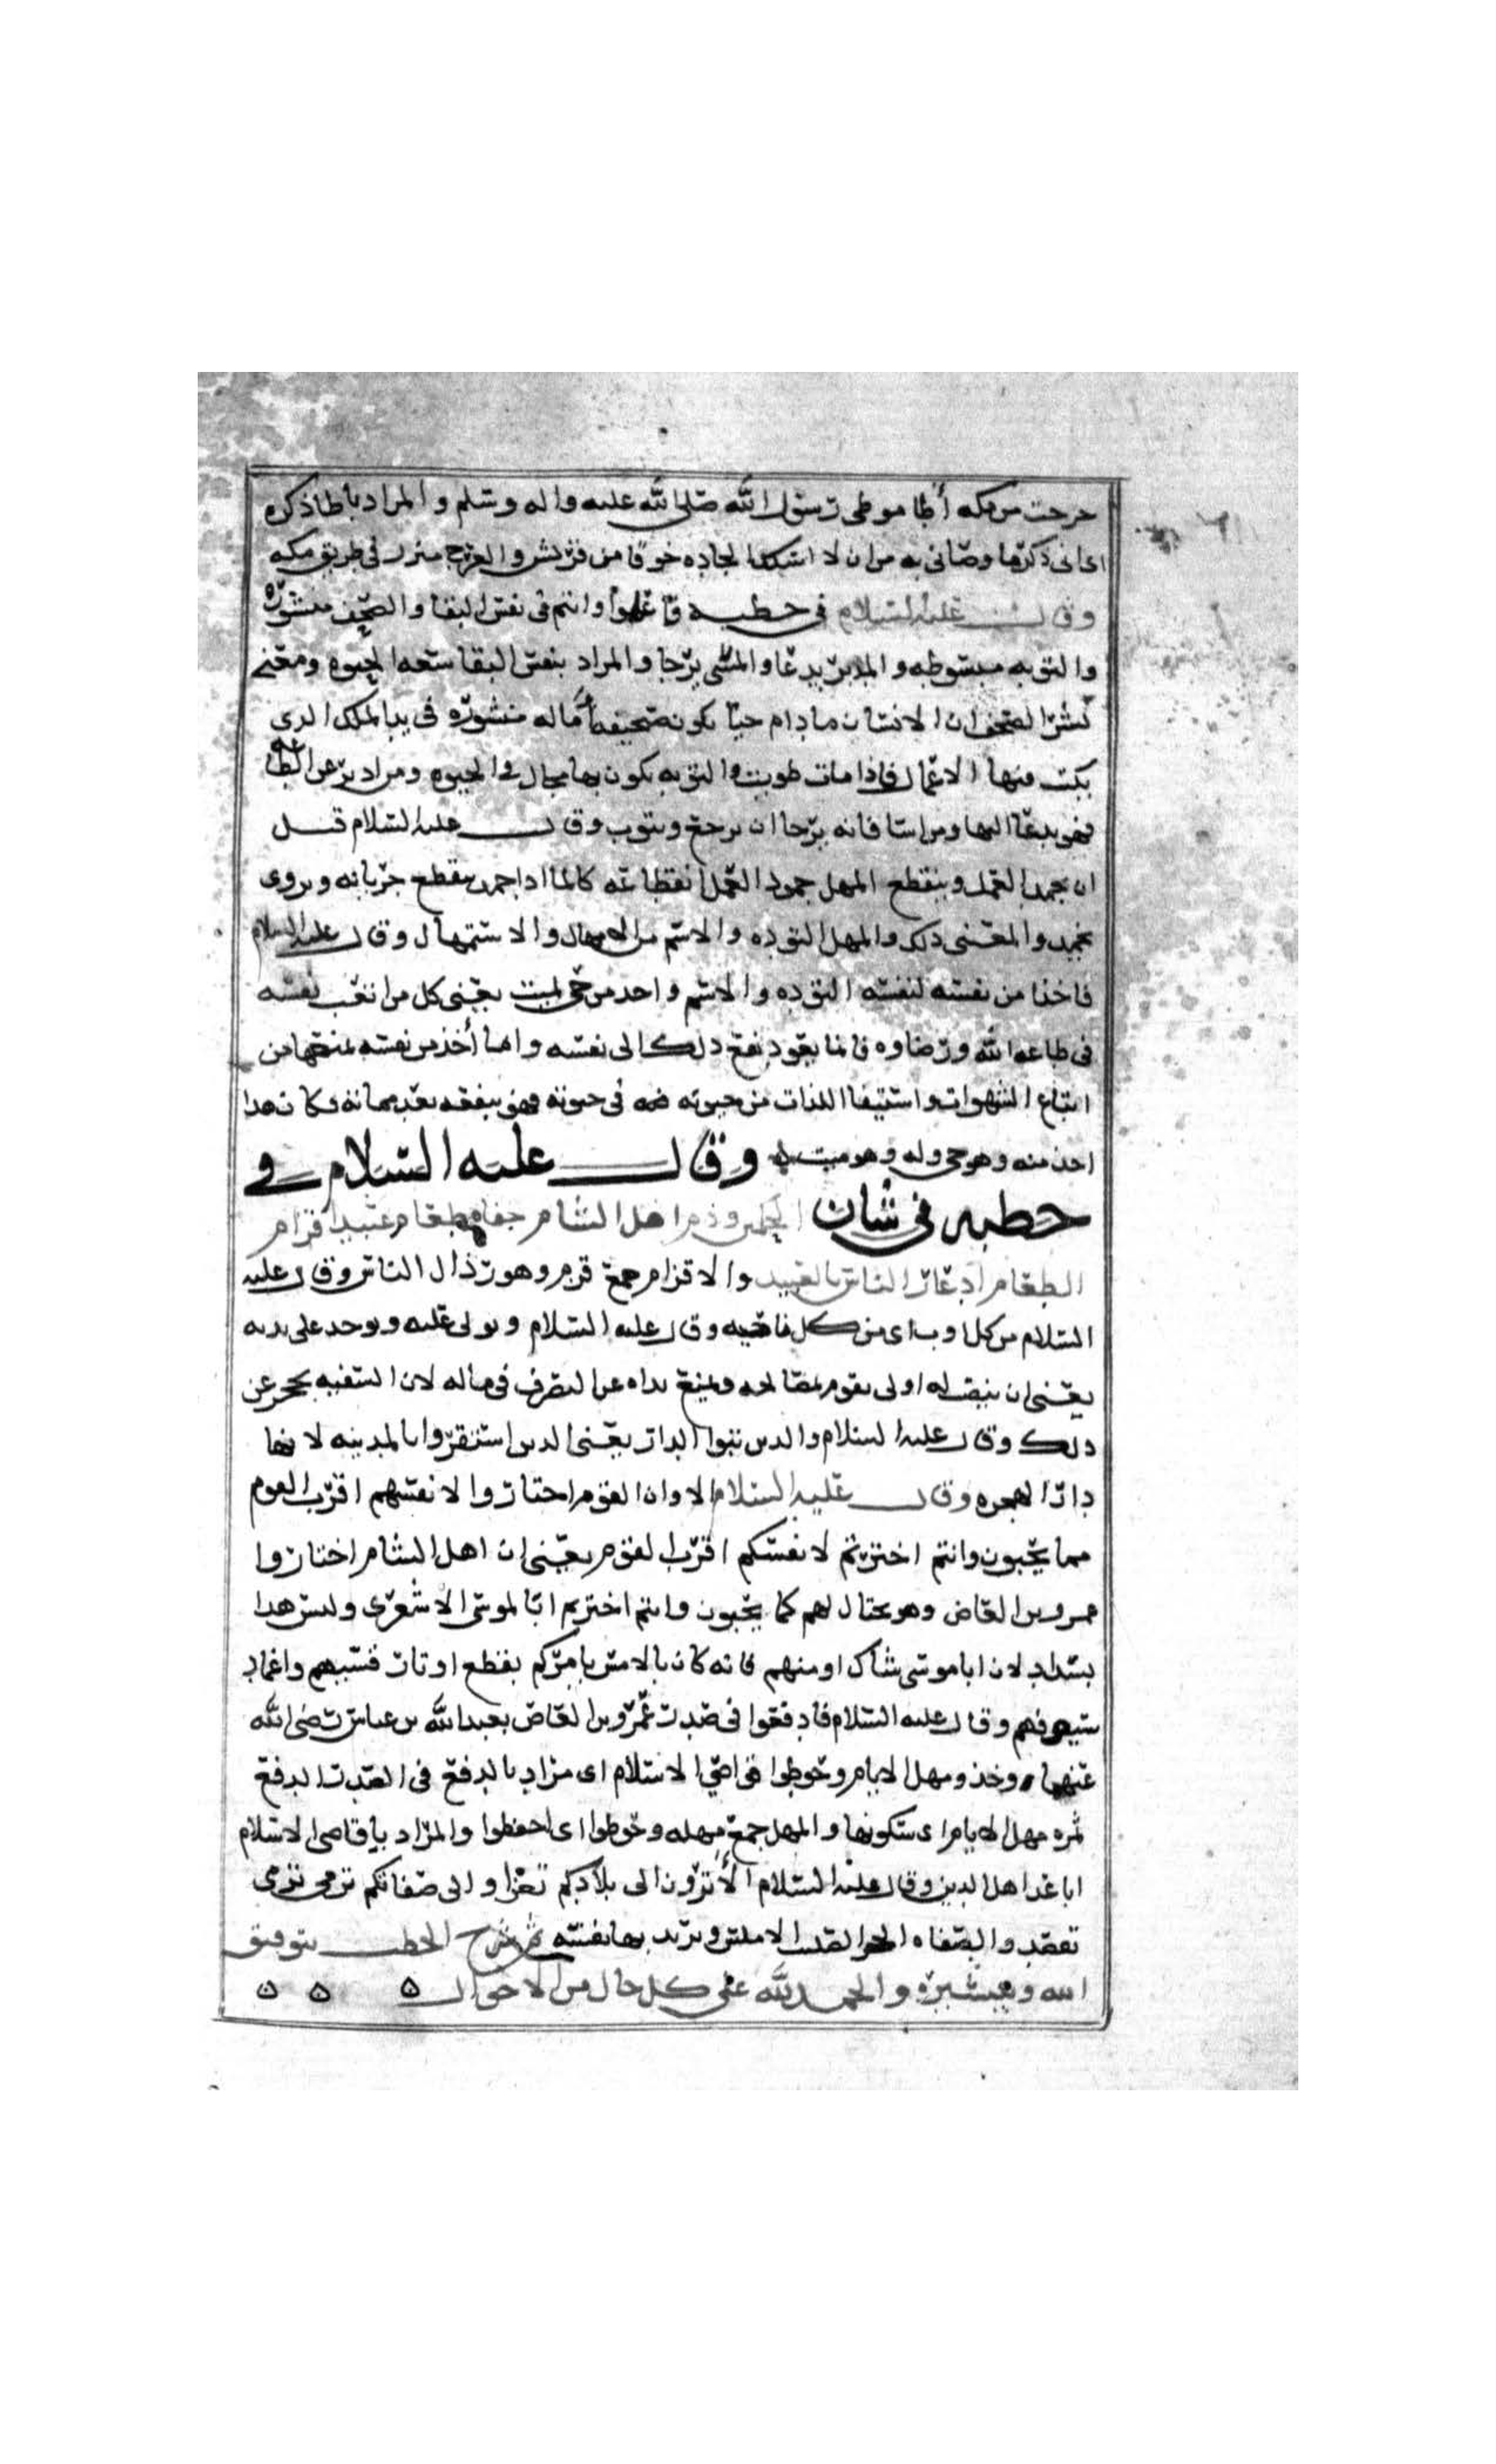 خرجت من مكه أطا موطى رسول الله صلى الله عليه واله وسلم والمراد باطا ذكره
اى انى ذكرها وصانى به من ان لا اسلك الجاده خوفا من قريش والعرج منزل فى طريق مكه
وقال عليه السلام فى خطبه فاعملوا وانتم فى نفس البقا والصحف منشوره
والتوبه مبسوطه والمدبر يدعا والمسى يرجا والمراد بنفس البقا سعه الحيوه ومعنى
نشر الصحف ان الانسان مادام حيا يكون صحيفه اعماله منشوره فى يد الملك الدى
يكتب فيها الاعمال فاذا مات طويت والتوبه يكون بها مجال فى الحيوه ومن ادبر عن الطاعه
فهو يدعا اليها ومن اسا فانه يرجا ان يرجع ويتوب وقال عليه السلام قبل
ان يجمد العمل وينقطع المهل جمود العمل انقطاعه كالما ادا جمد ينقطع جريانه ويروى
يخمد والمعنى دلك والمهل التوده والاسم من الامهال والاستمهال وقال عليه السلام
فاخذا من نفسه لنفسه التوده والاسم واحد من حى لميت يعنى كل من اتعب نفسه
فى طاعه الله ورضاوه فانما يعود نفع دلك الى نفسه وانما أخذ من نفسه لمنعها من
اتباع الشهوات واستيفا اللذات من حيوته فى حيوته فهو ينفعه بعد مماته فكان هدا
اخذ منه وهو حى وله وهو ميت وقال عليه السلام فى
خطبه فى شان الحكمين وذم اهل الشام جفاه طغام عبيد اقزام
الطغام اوغاد الناس بالعبيد والاقزام جمع قزم وهو رذال الناس وقال عليه
السلام من كل اوب اى من كل ناحيه وقال عليه السلام ويولى عليه ويوخد على يديه
يعنى ان ينصب له اولى يقوم بمصالحه ويمنع يداه عن التصرف فى ماله لان السفيه يحجر عن
دلك وقال عليه السلام والدين تبوا الدار يعنى الدين استقروا بالمدينه لانها
دار الهجره وقال عليه السلام الا وان القوم اختاروا لانفسهم اقرب القوم
مما يحبون وانتم اخترتم لانفسكم اقرب القوم يعنى ان اهل الشام اختاروا
عمرو بن العاص وهو يحتال لهم كما يحبون وانتم اخترتم ابا لموسى الاشعرى وليس هدا
بسداد لان ابا موسى شاك او منهم فانه كان بالامس يامركم بقطع اوتار قسيهم واغماد
سيوفهم وقال عليه السلام فادفعوا فى صدر عمرو بن العاص بعبد الله بن عباس رضى الله
عنهما وخذو مهل الايام وحوطوا قواصى الاسلام اى مراد بالدفع فى الصدر الدفع
ثمره مهل الايام اى سكونها والمهل جمع مهله وحوطوا اى احفظوا والمراد باقاصى الاسلام
اباعد اهل الدين وقال عليه السلام الا ترون الى بلادكم تغزا والى صفاتكم ترمى ترمى
تقصد والصفاه الحجر الصلب الاملس ويريد بها نفسه تم شرح الخطب بتوفيق
الله وتيسيره والحمد لله على كل حال من الاحوال